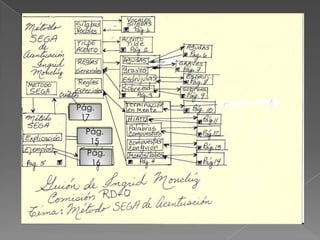 Método
SEGA
de
Acentuación
Ingrid
Monchig
Sílabas
Vocales
Vocales
Sílabas
Pág. 1
Tilde
Acento
Acento
Tilde
Pág. 2
Reglas
Generales
Agudas
Graves
Esdrújulas
Sobresd.
Pág. 3
Agudas
Pág. 6
Graves
Pág. 7
Pág. 8
Pág. 9
Reglas
Especiales
METODO
SEGA
Pág.
17
Terminación
en Mente
Pág. 10
Método
SEGA
Hiato
Pág 11
Pág.
15
Palabras
Compuestas
Pág 12
Explicación
Pág. 13
Ejemplos
Pág.
16
Monosílabos
Pág. 5
Pág 4
Pág 14
Guión de Ingrid Monchig
Comisión RD-O
Tema: Método SEGA de Acentuación